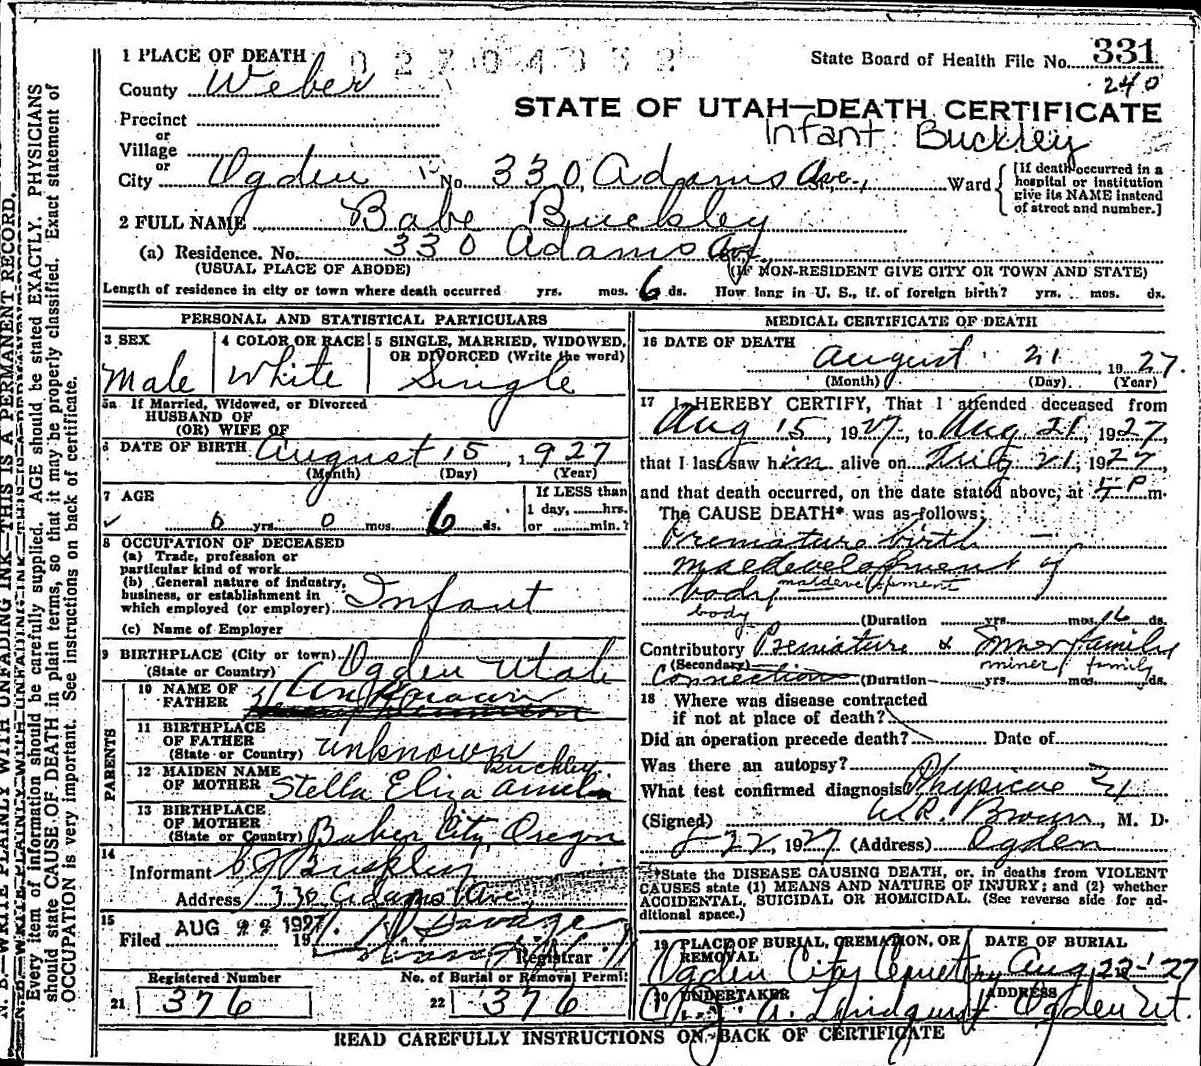 1 PLACE OF DEATH
State Board of Health File No. 331
240
County Weber
STATE OF UTAH—DEATH CERTIFICATE
Infant Buckley
Precinct
or
Village
or
City Ogden No. 330 Adams Ave., Ward
[If death occurred in a
hospital or institution
give its NAME instead
of street and number.]
2 FULL NAME Babe Buckley
(a) Residence. No. 330 Adams Ave.
(USUAL PLACE OF ABODE) (IF NON-RESIDENT GIVE CITY OR TOWN AND STATE)
Length of residence in city or town where death occurred yrs. mos. 6 ds. How long in U. S., if of foreign birth? yrs. mos. ds.
PERSONAL AND STATISTICAL PARTICULARS
3 SEX
Male
4 COLOR OR RACE
White
5 SINGLE, MARRIED, WIDOWED,
OR DIVORCED (Write the word)
Single
5a If Married, Widowed, or Divorced
HUSBAND OF
(OR) WIFE OF
6 DATE OF BIRTH August 15, 1927
(Month) (Day) (Year)
7 AGE
0 yrs. 0 mos. 6 ds.
If LESS than
1 day, hrs.
or min.?
8 OCCUPATION OF DECEASED
(a) Trade, profession or
particular kind of work
(b) General nature of industry,
business, or establishment in
which employed (or employer) Infant
(c) Name of Employer
9 BIRTHPLACE (City or town) Ogden Utah
(State or Country)
PARENTS
10 NAME OF
FATHER Unknown
11 BIRTHPLACE
OF FATHER
(State or Country) unknown
12 MAIDEN NAME Buckley
OF MOTHER Stella Eliza
13 BIRTHPLACE
OF MOTHER
(State or Country) Baker City, Oregon
14
Informant Buckley
Address 330 Adams Ave,
15
Filed AUG 22 1927
Registrar
Registered Number
21 376
No. of Burial or Removal Permit
22 376
MEDICAL CERTIFICATE OF DEATH
16 DATE OF DEATH
August 21, 1927.
(Month) (Day) (Year)
17 I HEREBY CERTIFY, That I attended deceased from
Aug 15, 1927, to Aug 21, 1927
that I last saw him alive on 21, 1927,
and that death occurred, on the date stated above, at m.
The CAUSE DEATH* was as follows:
Premature birth
maldevelopment of
body maldevelopment
body
(Duration yrs. mos. ds.
Contributory Premature &
(Secondary) miner family
connection (Duration yrs. mos. ds.
18 Where was disease contracted
if not at place of death?
Did an operation precede death? Date of
Was there an autopsy?
What test confirmed diagnosis Physical
(Signed) W.R. Brown, M. D.
8-22, 1927 (Address) Ogden
*State the DISEASE CAUSING DEATH, or, in deaths from VIOLENT
CAUSES state (1) MEANS AND NATURE OF INJURY; and (2) whether
ACCIDENTAL, SUICIDAL OR HOMICIDAL. (See reverse side for ad-
ditional space.)
19 PLACE OF BURIAL, CREMATION, OR
REMOVAL
Ogden City Cemetery
DATE OF BURIAL
Aug 22-'27
20 UNDERTAKER
A. Lindquist
ADDRESS
Ogden Ut.
READ CAREFULLY INSTRUCTIONS ON BACK OF CERTIFICATE
N. B.—WRITE PLAINLY WITH UNFADING INK—THIS IS A PERMANENT RECORD.
Every item of information should be carefully supplied. AGE should be stated EXACTLY. PHYSICIANS
should state CAUSE OF DEATH in plain terms, so that it may be properly classified. Exact statement of
OCCUPATION is very important. See instructions on back of certificate.